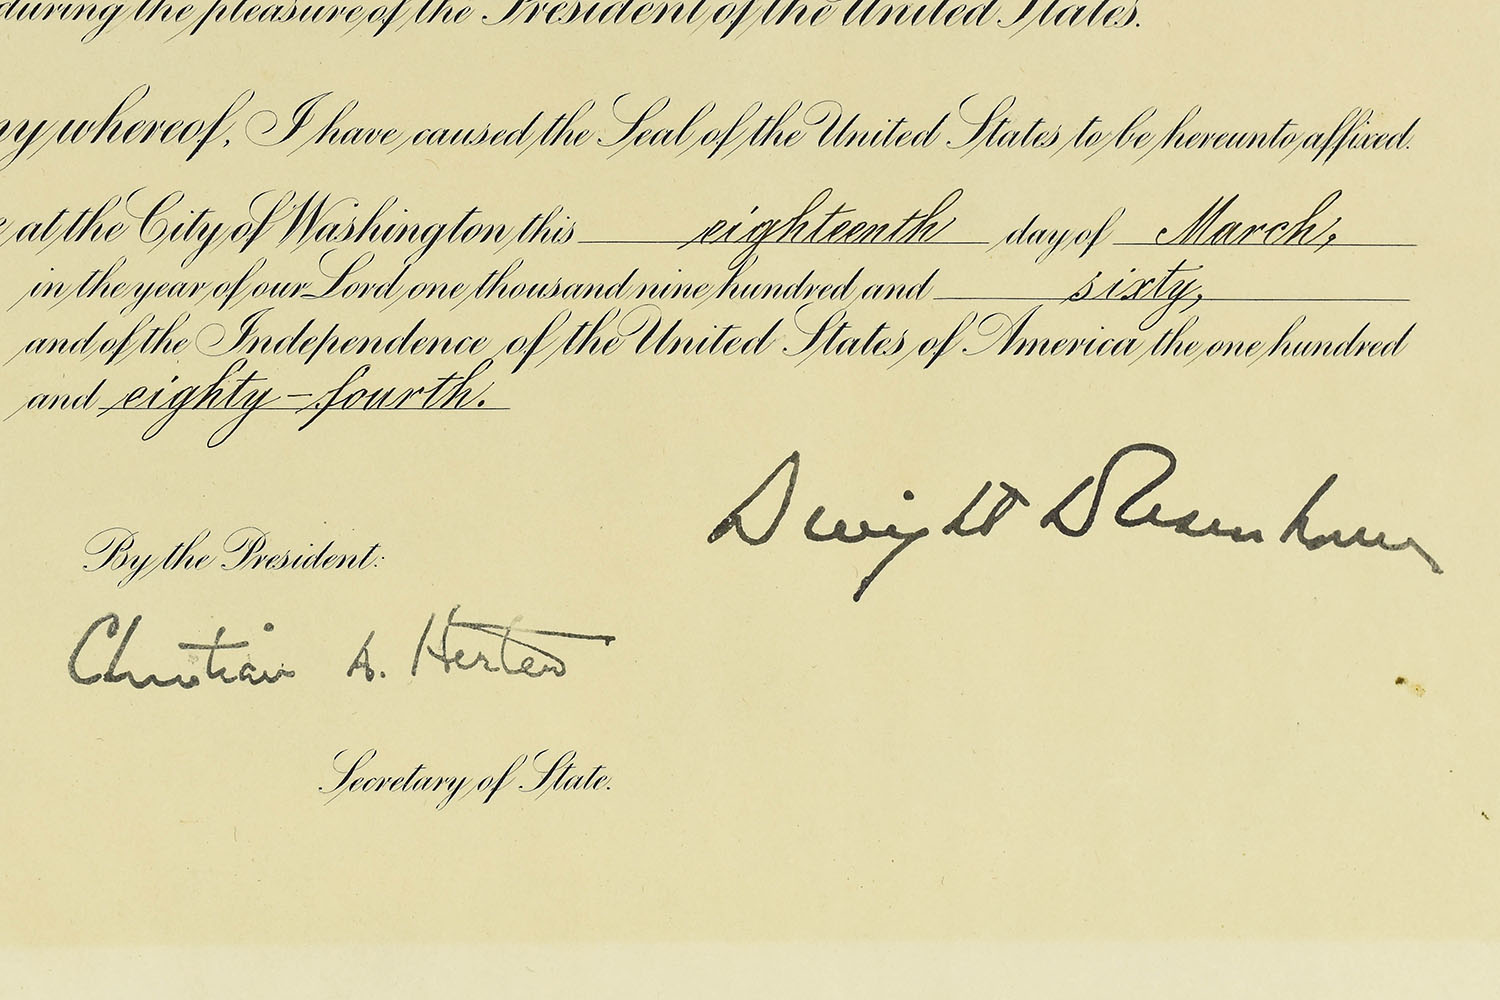 during the pleasure of the President of the United States.
whereof, I have caused the Seal of the United States to be hereunto affixed.
at the City of Washington this eighteenth day of March,
in the year of our Lord one thousand nine hundred and sixty,
and of the Independence of the United States of America the one hundred
and eighty-fourth.
Dwight D Eisenhower
By the President:
Christian A. Herter
Secretary of State.